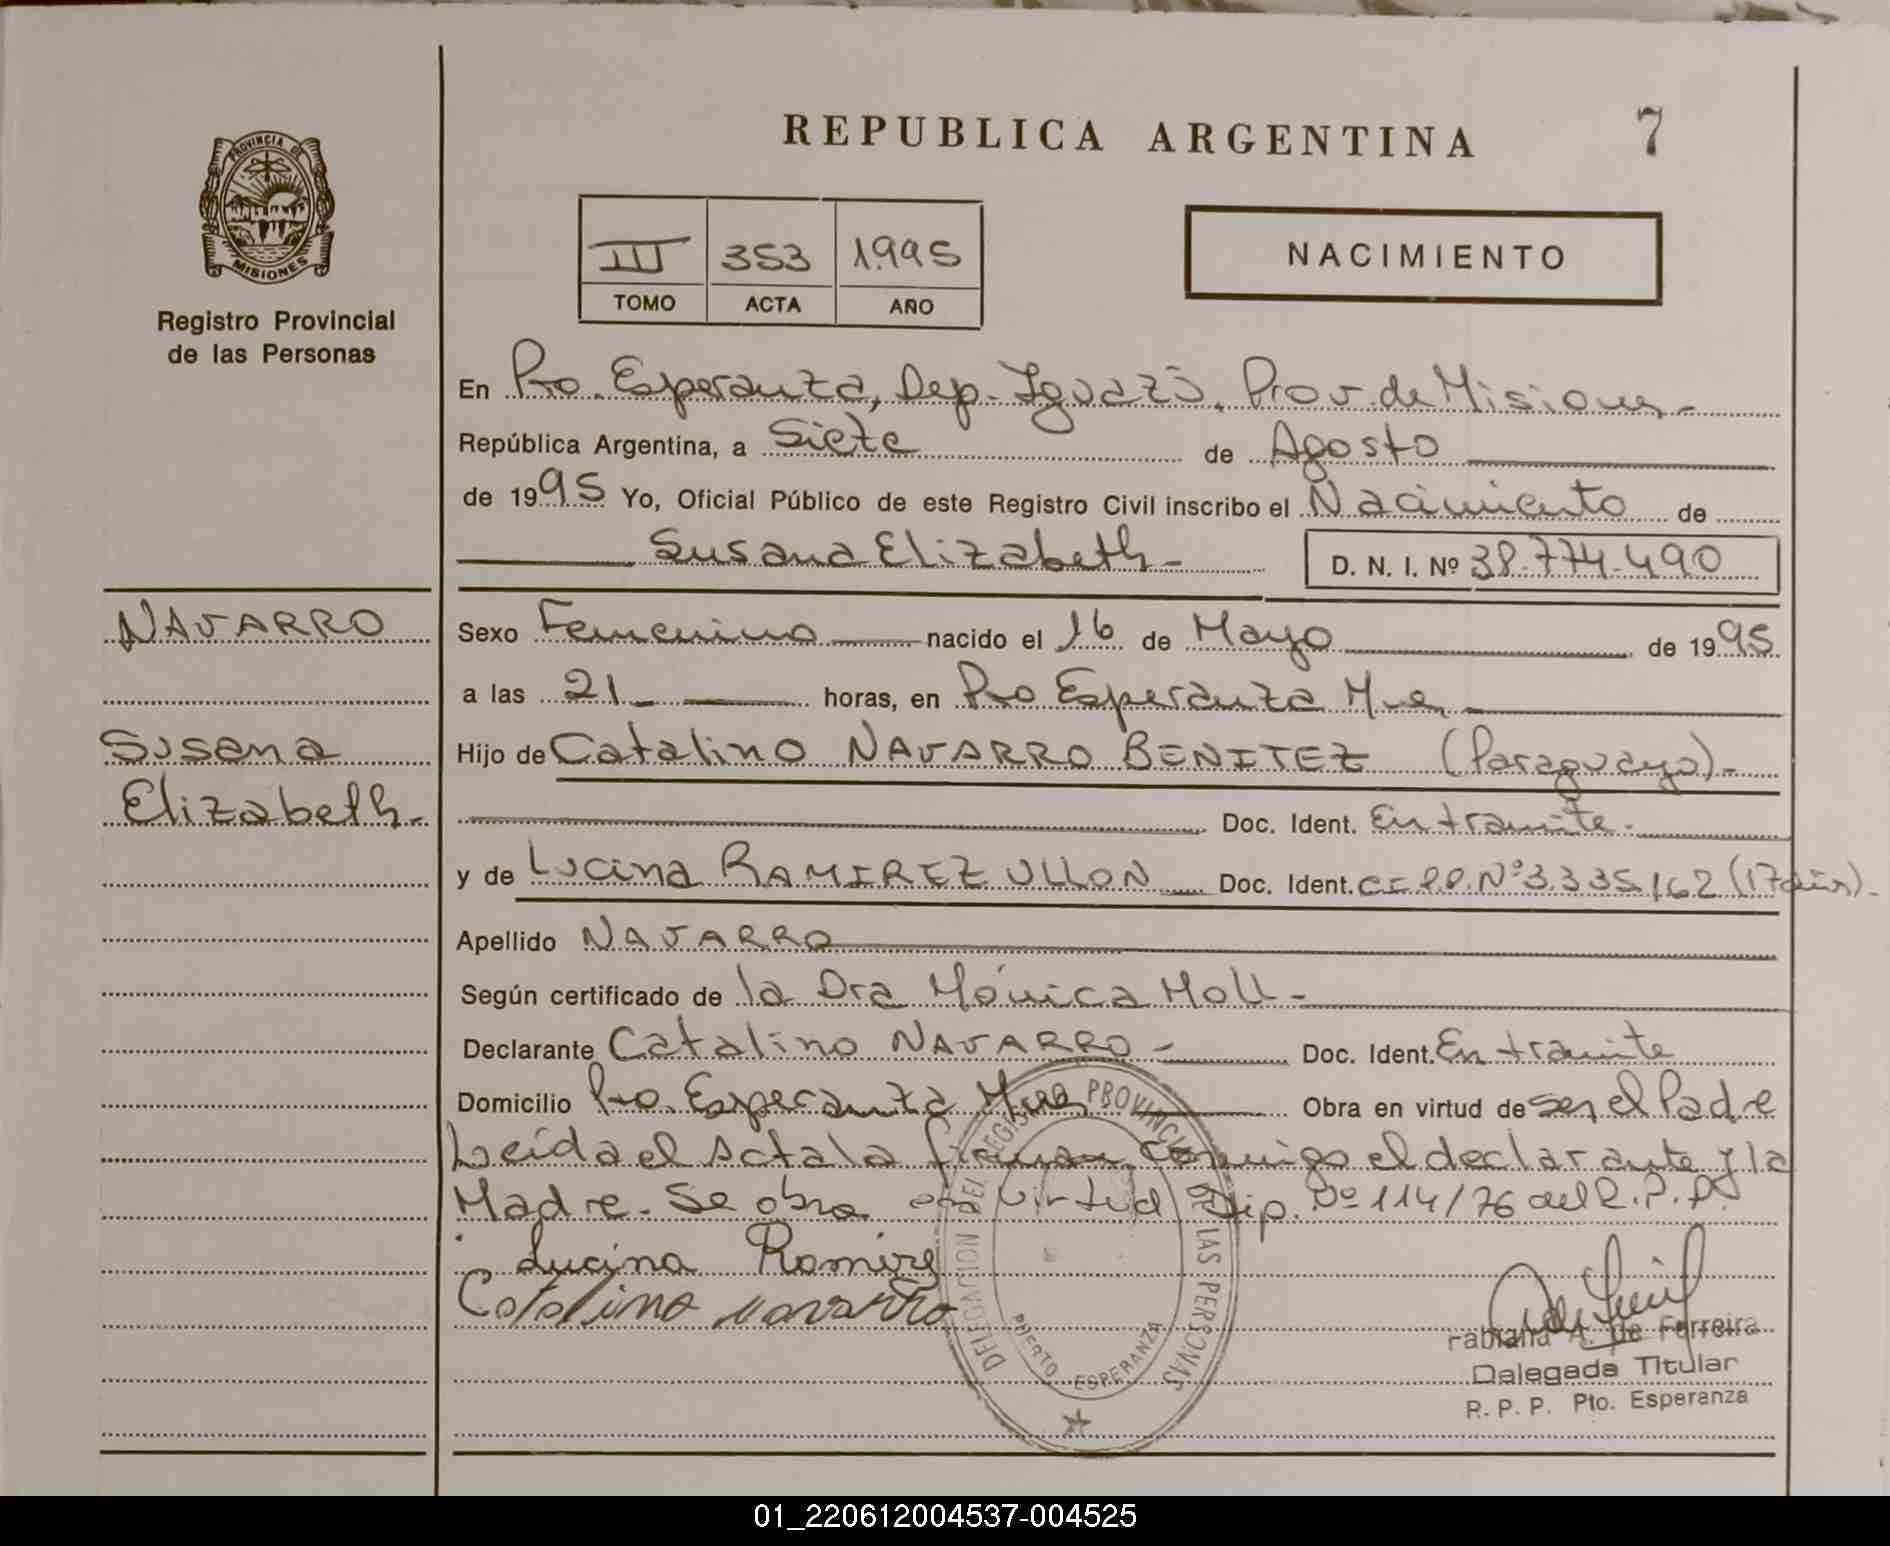 REPUBLICA ARGENTINA
7
PROVINCIA DE
MISIONES
Registro Provincial
de las Personas
III 353 1995
TOMO ACTA AÑO
NACIMIENTO
En Pto. Esperanza, Dep. Iguazú, Prov. de Misiones -
República Argentina, a Siete de Agosto
de 1995 Yo, Oficial Público de este Registro Civil inscribo el Nacimiento de
Susana Elizabeth - D. N. I. Nº 38.774.490
NAVARRO
Susana
Elizabeth -
Sexo Femenino nacido el 16 de Mayo de 1995
a las 21 horas, en Pto Esperanza Mnes
Hijo de Catalino NAVARRO BENITEZ (Paraguayo) -
Doc. Ident. En tramite -
y de Lucina RAMIREZ ULLON Doc. Ident. C.I. Nº 3.335.162 (17 años) -
Apellido NAVARRO
Según certificado de la Dra Mónica Moll -
Declarante Catalino NAVARRO - Doc. Ident. En tramite
Domicilio Pto. Esperanza Mnes Obra en virtud de ser el Padre
Leída el Acta la firman conmigo el declarante y la
Madre - Se obra en virtud Dip. Nº 114/76 del R.P.P.
Lucina Ramirez
Catalino Navarro
DELEGACION DEL REGISTRO PROVINCIAL DE LAS PERSONAS
PUERTO ESPERANZA
Fabiana A. de Ferreira
Delegada Titular
R. P. P. Pto. Esperanza
01_220612004537-004525